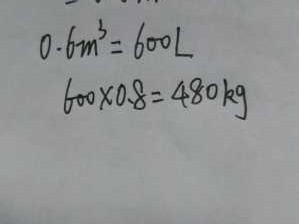 0.6m³=600L
600×0.8=480kg